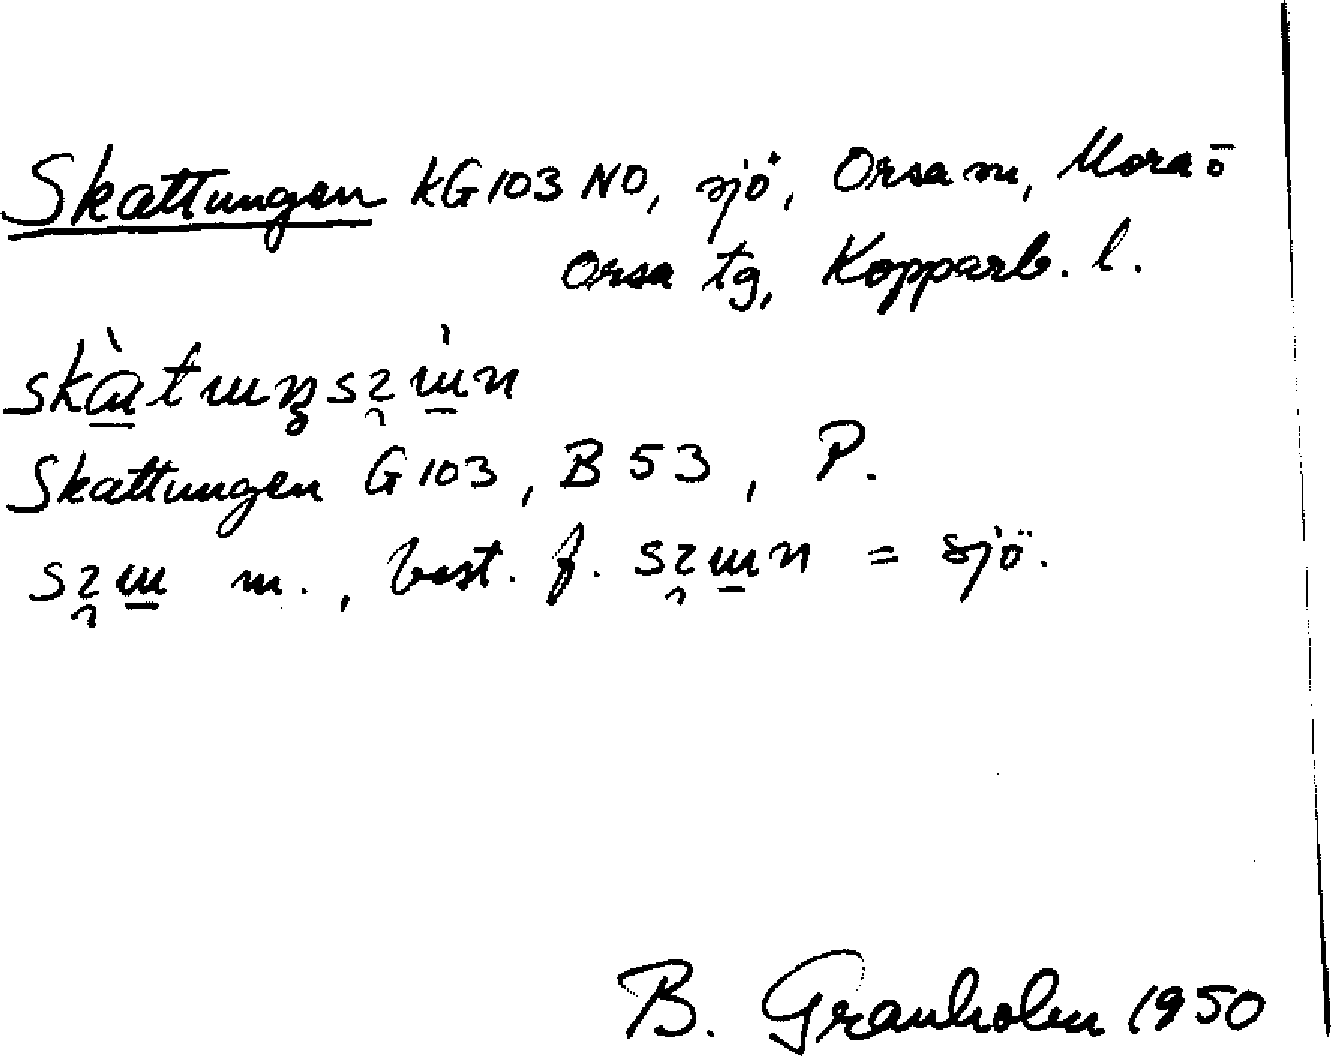 Skattungen kG 103 NO, sjö, Orsa sn, Mora ö
Orsa tg, Kopparb. l.
Skattungen G 103, B 53, P.
m., best. f. = sjö.
B. Granholm 1950